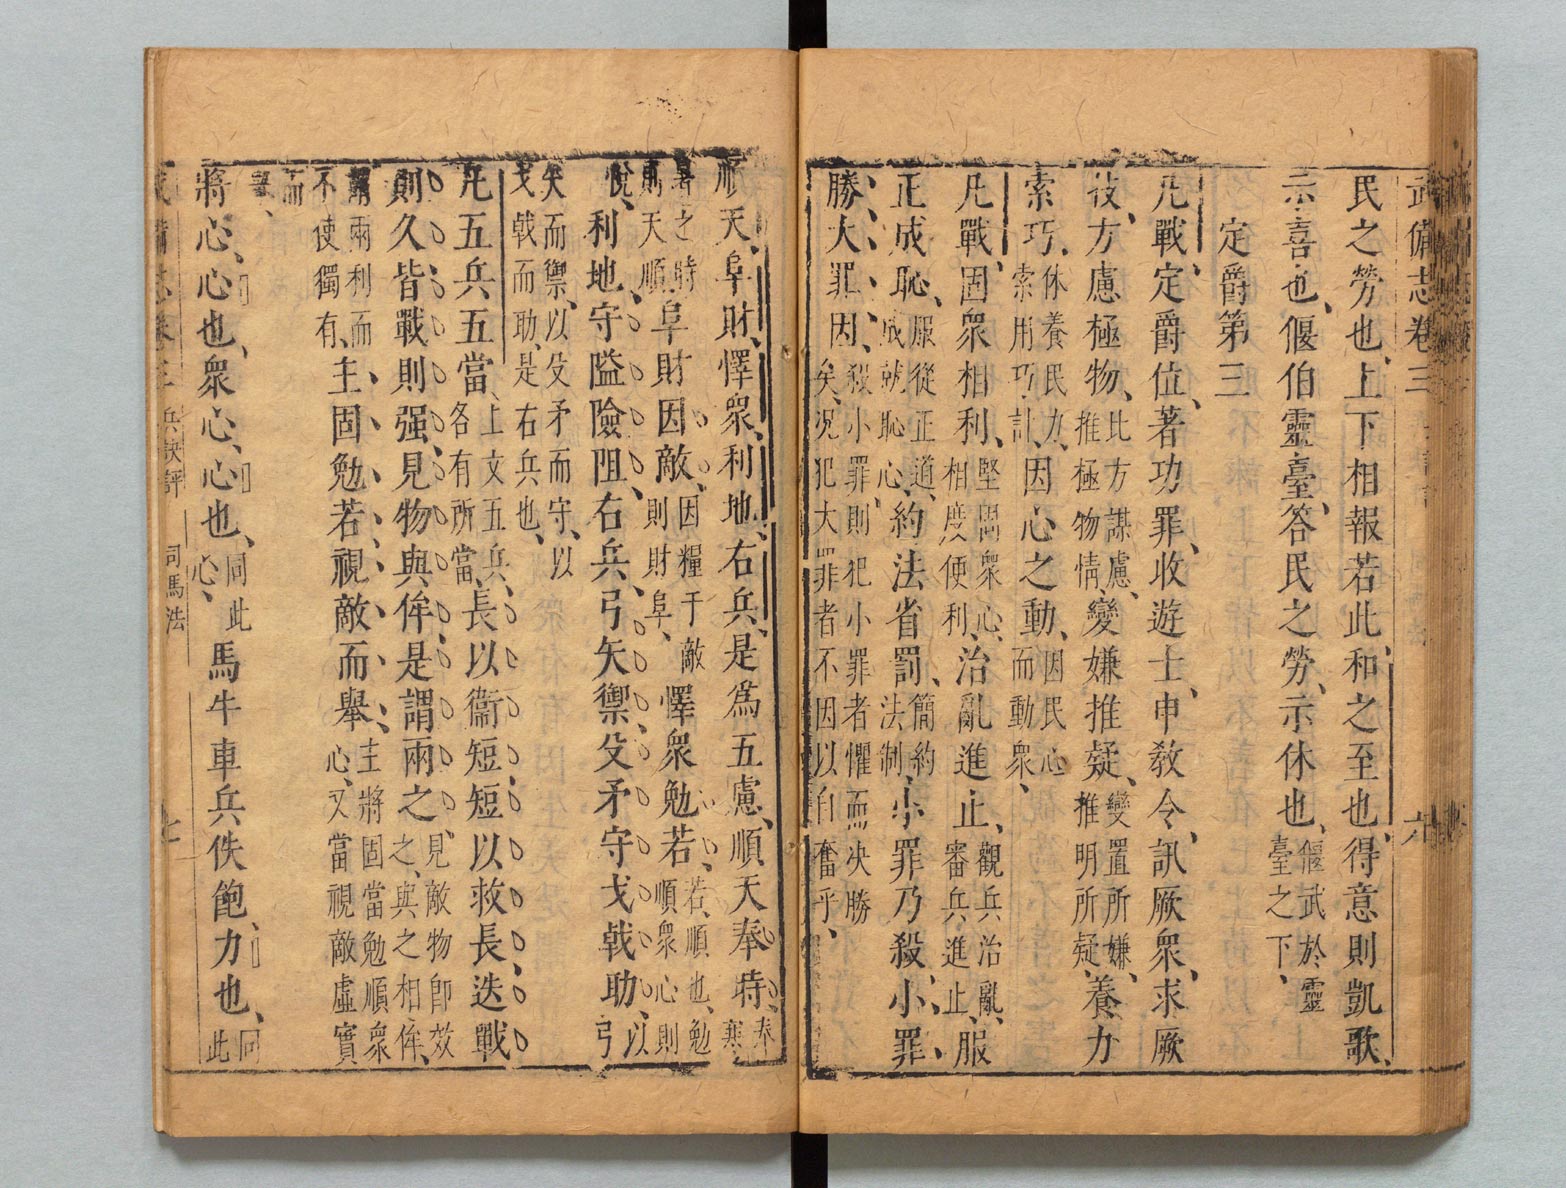 武備志卷三 六
民之勞也、上下相報若此、和之至也、得意則凱歌、
示喜也、偃伯靈臺、答民之勞、示休也、偃武於靈臺之下、
定爵第三
凡戰定爵位、著功罪、收遊士、申教令、訊厥衆、求厥
技、方慮極物、比方謀慮、推極物情、變嫌推疑、變置所嫌、推明所疑、養力
索巧、休養民力、索用巧計、因心之動、因民心而動衆、
凡戰、固衆相利、堅固衆心、相度便利、治亂進止、觀兵治亂、審兵進止、服
正成恥、服從正道、成就恥心、約法省罰、簡約法制、小罪乃殺、小罪
勝、大罪因、殺小罪、則犯小罪者懼而决勝矣、況犯大罪者不因以自奮乎、
順天、阜財、懌衆、利地、右兵、是爲五慮、順天奉時、奉寒
暑之時則天順、阜財因敵、因糧于敵則財阜、懌衆勉若、若、順也、勉順衆心則
悅、利地、守隘險阻、右兵、弓矢禦、殳矛守、戈戟助、以弓
矢而禦、以殳矛而守、以戈戟而助、是右兵也、
凡五兵五當、上文五兵、各有所當、長以衞短、短以救長、迭戰
則久、皆戰則强、見物與侔、是謂兩之、見敵物即效之、與之相侔、
謂兩利而不使獨有、主固勉若、視敵而舉、主將固當勉順衆心、又當視敵虛實
而舉、
將心、心也、衆心、心也、同此心、馬牛車兵佚飽、力也、同此
武備志卷三 兵訣評 司馬法 七